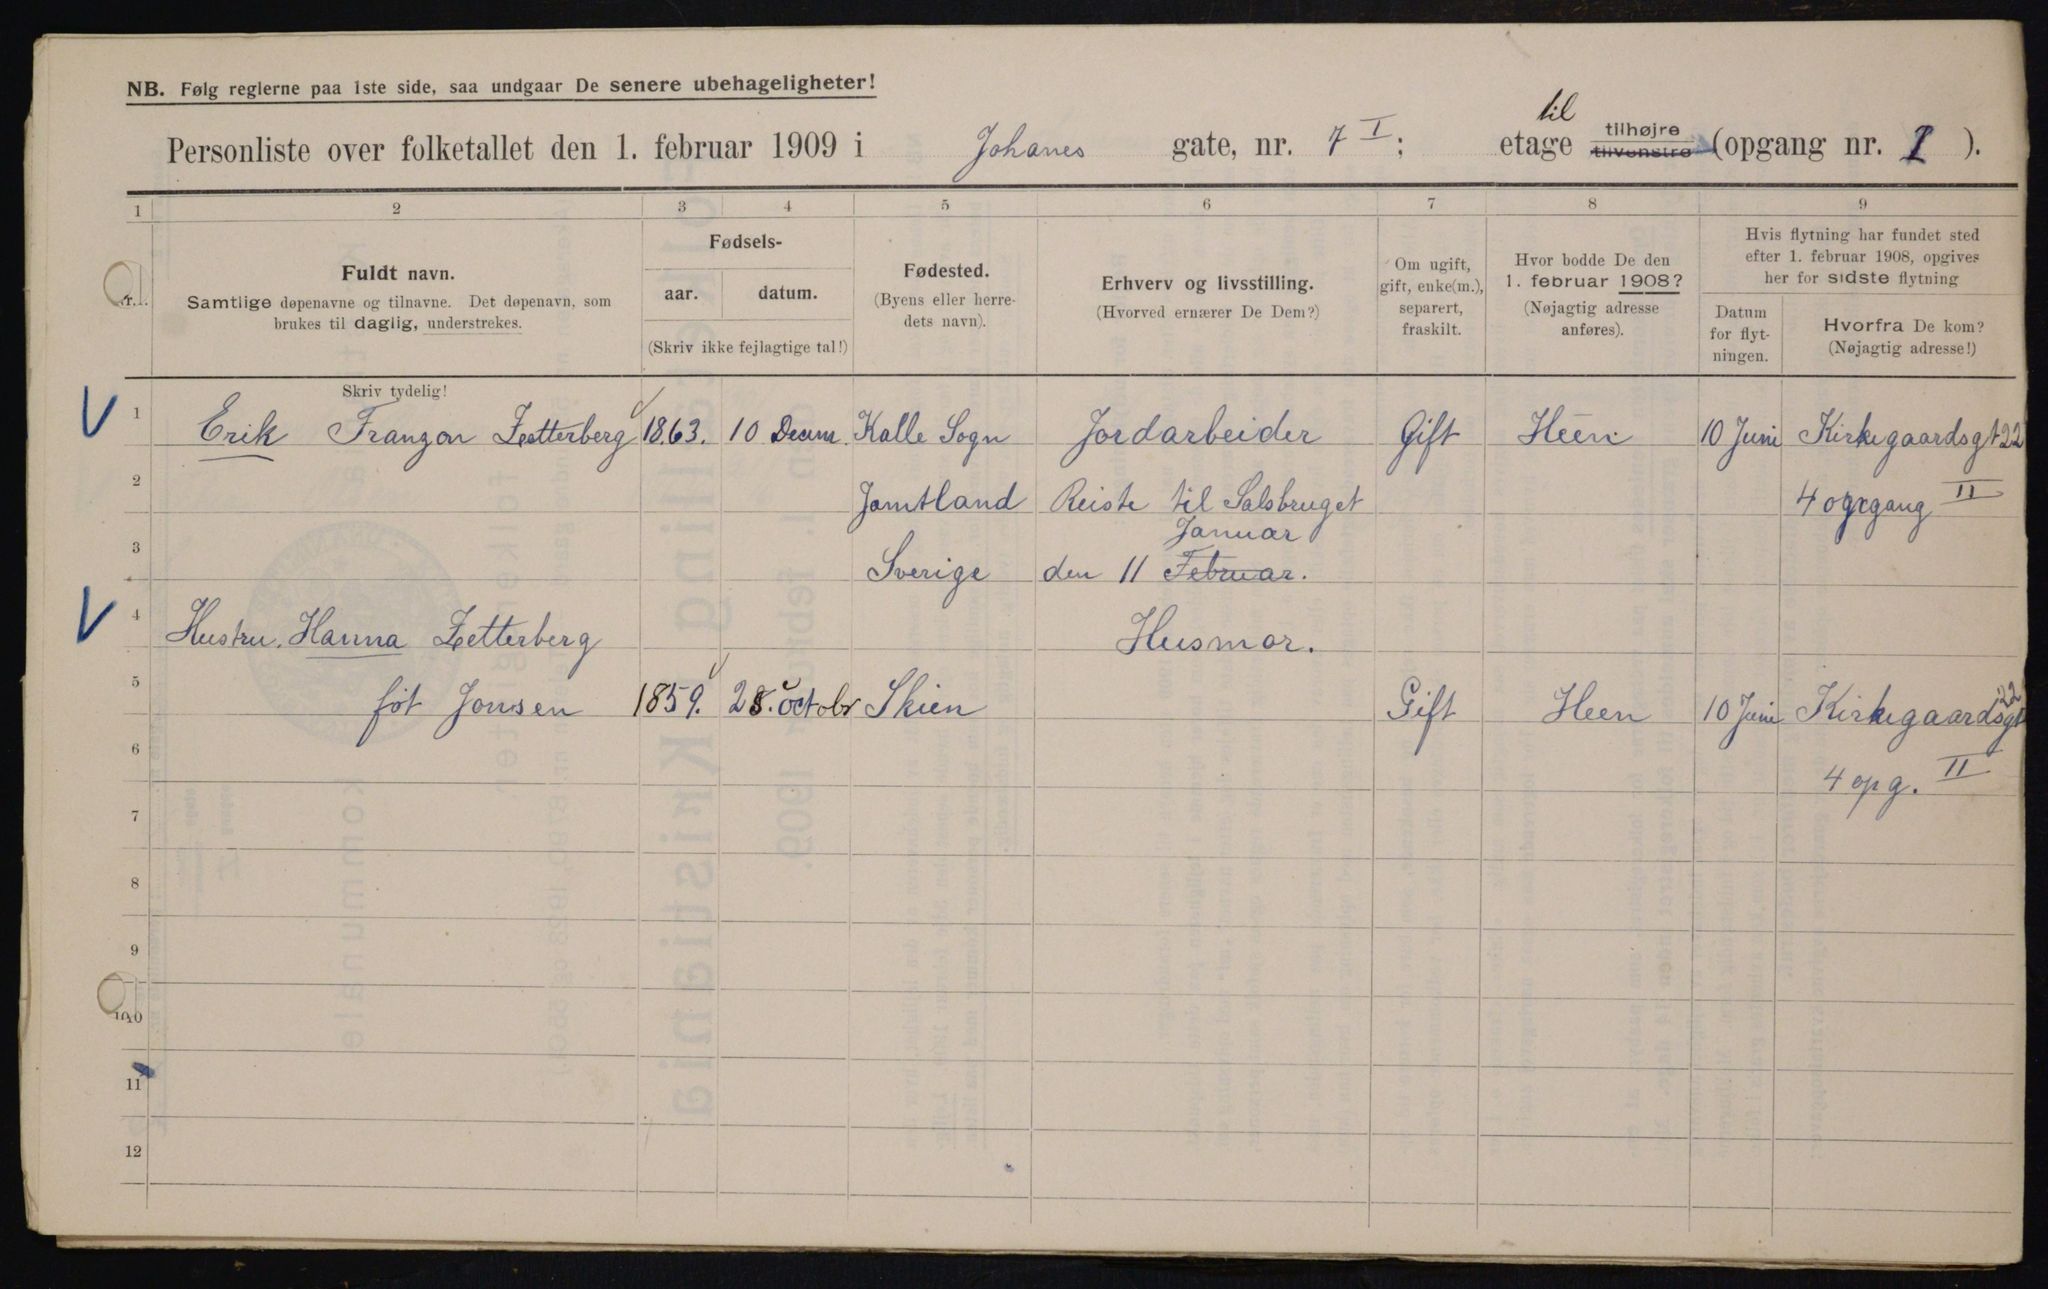 NB. Følg reglerne paa 1ste side, saa undgaar De senere ubehageligheter!
Personliste over folketallet den 1. februar 1909 i Johanes gate, nr. 7 I; til etage tilhøjre tilvenstre (opgang nr. 1 ).
1 2 3 4 5 6 7 8 9
Nr.
Fuldt navn.
Samtlige døpenavne og tilnavne. Det døpenavn, som
brukes til daglig, understrekes.
Fødsels-
aar. datum.
(Skriv ikke fejlagtige tal!)
Fødested.
(Byens eller herre-
dets navn).
Erhverv og livsstilling.
(Hvorved ernærer De Dem?)
Om ugift,
gift, enke(m.),
separert,
fraskilt.
Hvor bodde De den
1. februar 1908?
(Nøjagtig adresse
anføres).
Hvis flytning har fundet sted
efter 1. februar 1908, opgives
her for sidste flytning
Datum
for flyt-
ningen.
Hvorfra De kom?
(Nøjagtig adresse!)
Skriv tydelig!
1 Erik Franzon Zetterberg 1863. 10 Decem. Kalle Sogn Jordarbeider Gift Heen 10 Juni Kirkegaardsgt 22
2 Jamtland Reiste til Salsbruget 4 opgang II
Januar
3 Sverige den 11 Februar.
4 Hustru. Hanna Zetterberg Husmor.
5 føt Jonsen 1859. 28. octobr Skien Gift Heen 10 Juni Kirkegaardsgt 22
6 4 opg. II
7
8
9
10
11
12